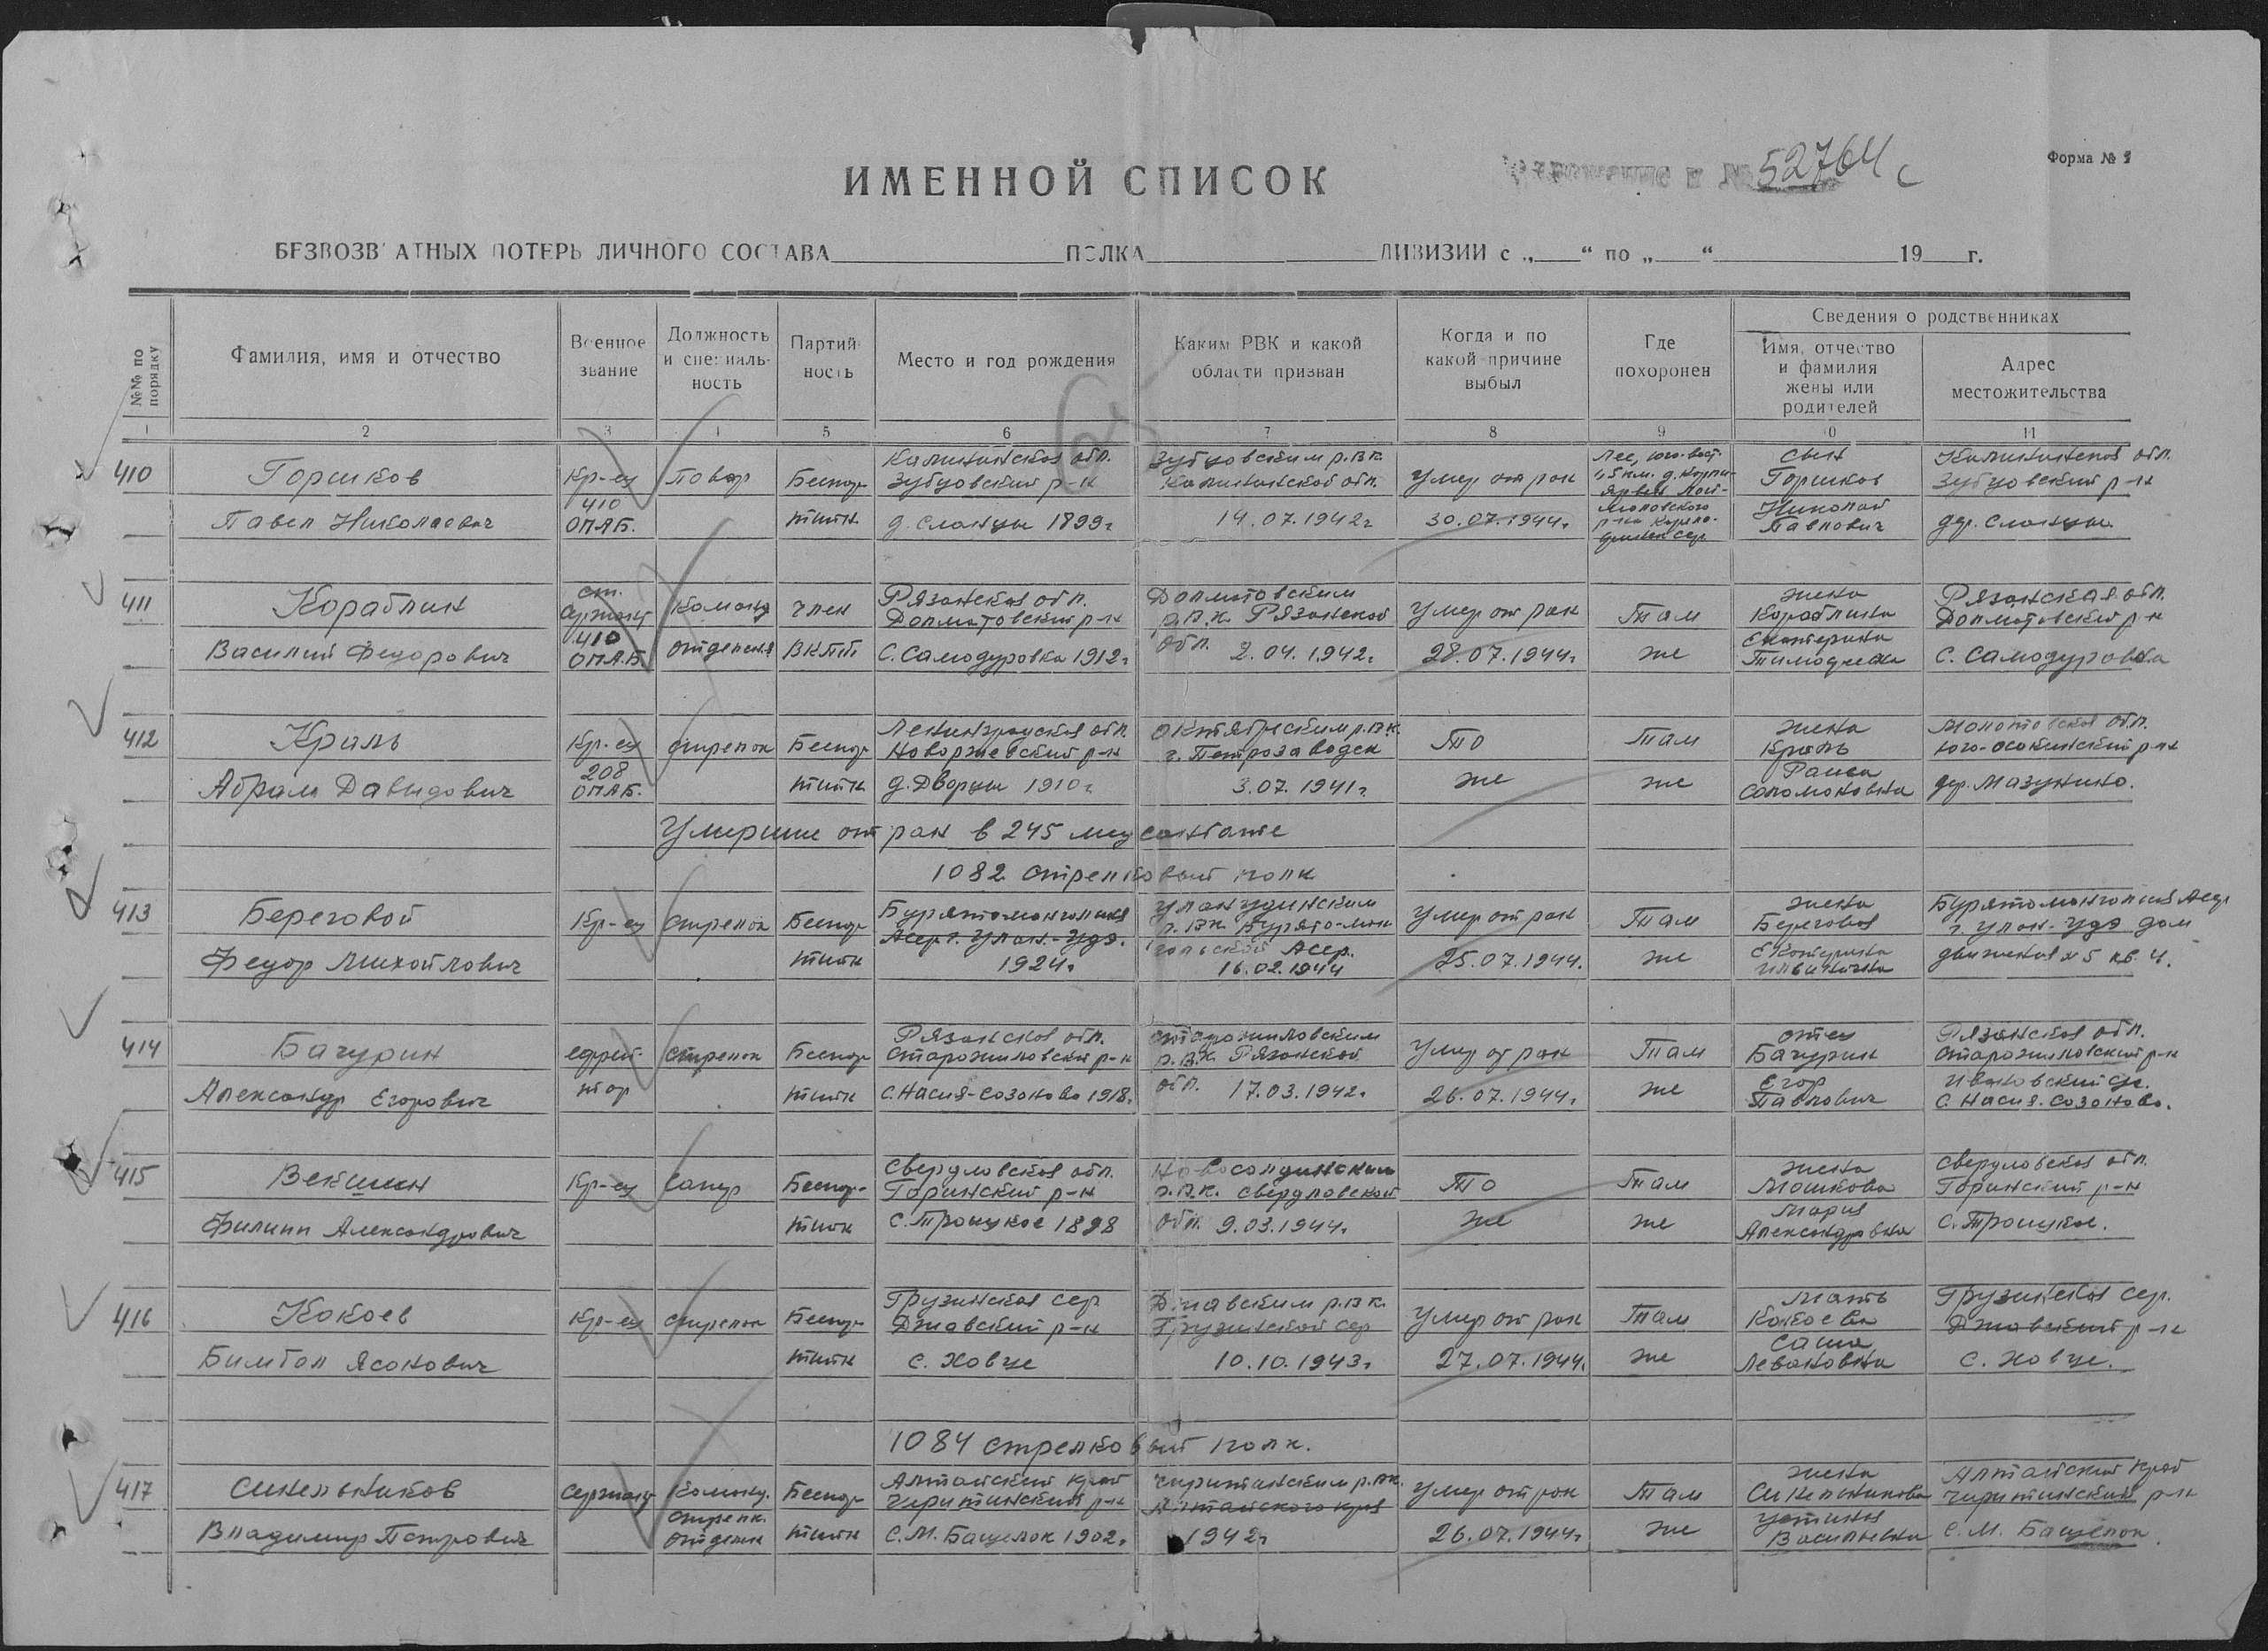 52764 с
Форма №
ИМЕННОЙ СПИСОК
БЕЗВОЗВ АТНЫХ ПОТЕРЬ ЛИЧНОГО СОСТАВА ПОЛКА ДИВИЗИИ с „ “ по „ “ 19 г.
№№ по порядку
Фамилия, имя и отчество
Военное звание
Должность и специальность
Партийность
Место и год рождения
Каким РВК и какой области призван
Когда и по какой причине выбыл
Где похоронен
Сведения о родственниках
Имя, отчество и фамилия жены или родителей
Адрес местожительства
1 2 3 4 5 6 7 8 9 10 11
410 Горшков Кр-ец Повар Беспар- Калининская обл. Зубцовский р-н Зубцовским р.вк Калининской обл. Умер от ран Лес, юго-вост. 1,5 км. д. сын Горшков Калининская обл. Зубцовский р-н
Павел Николаевич 410 ОПАБ. тийн д. Слонцы 1899г 14.07.1942г 30.07.1944г. Николай Павлович дер. Слонцы
411 Кораблин ст. сержант Команд член Рязанская обл. Долматовский р-н Долматовским р.в.к. Рязанской Умер от ран Там жена Кораблина Рязанская обл. Долматовский р-н
Василий Федорович 410 ОПАБ отделения ВКПб. с. Самодуровка 1912г обл. 2.04.1942г. 28.07.1944г. же Екатерина с. Самодуровка
412 Кроль Кр-ец стрелок Беспар- Ленинградская обл. Новоржевский р-н Октябрьским р.вк. г. Петрозаводск То Там жена Кроль Молотовская обл. Юго-осокинский р-н
Абрам Давыдович 208 ОПАБ. тийн д. Дворцы 1910г. 3.07.1941г. же же Раиса Соломоновна дер. Мазунино.
Умершие от ран в 245 медсанбате
1082 стрелковый полк
413 Береговой Кр-ец стрелок Беспар- Бурятомонгольская Асср г. Улан-Удэ. Уланудинским р.вк Бурято-мон Умер от ран Там жена Береговая Бурятомонгольская Асср г. Улан-Удэ дом
Федор Михайлович тийн 1924г. гольской Асср. 16.02.1944 25.07.1944г. же Екатерина № 5 кв. 4.
414 Бачурин ефрей- стрелок Беспар- Рязанская обл. Старожиловский р-н Старожиловским р.в.к Рязанской Умер от ран Там отец Бачурин Рязанская обл. Старожиловский р-н
Александр Егорович тор тийн с. 1918г. обл. 17.03.1942г. 26.07.1944г. же Егор Павлович с.
415 Векшин Кр-ец Сапер Беспар- Свердловская обл. Гаринский р-н р.в.к. Свердловской То Там жена Мошкова Свердловская обл. Гаринский р-н
Филипп Александрович тийн с. Троицкое 1898 обл. 9.03.1944г. же же Мария Александровна с. Троицкое.
416 Кокоев Кр-ец стрелок Беспар- Грузинская сср Джавский р-н Джавским р.в.к. Грузинской сср Умер от ран Там мать Кокоева Грузинская сср. Джавский р-н
Ясонович тийн с. Ховце 10.10.1943г 27.07.1944г. же Саша Левановна с. Ховце.
1084 стрелковый полк.
417 Синельников Сержант Команд. Беспар- Алтайский край р-н р.вк. Алтайского края Умер от ран Там жена Синельникова Алтайский край р-н
Владимир Петрович стрелк. отделен тийн с. М. Бащелак 1902г. 1942г 26.07.1944г же Устинья Васильевна с. М. Бащелак